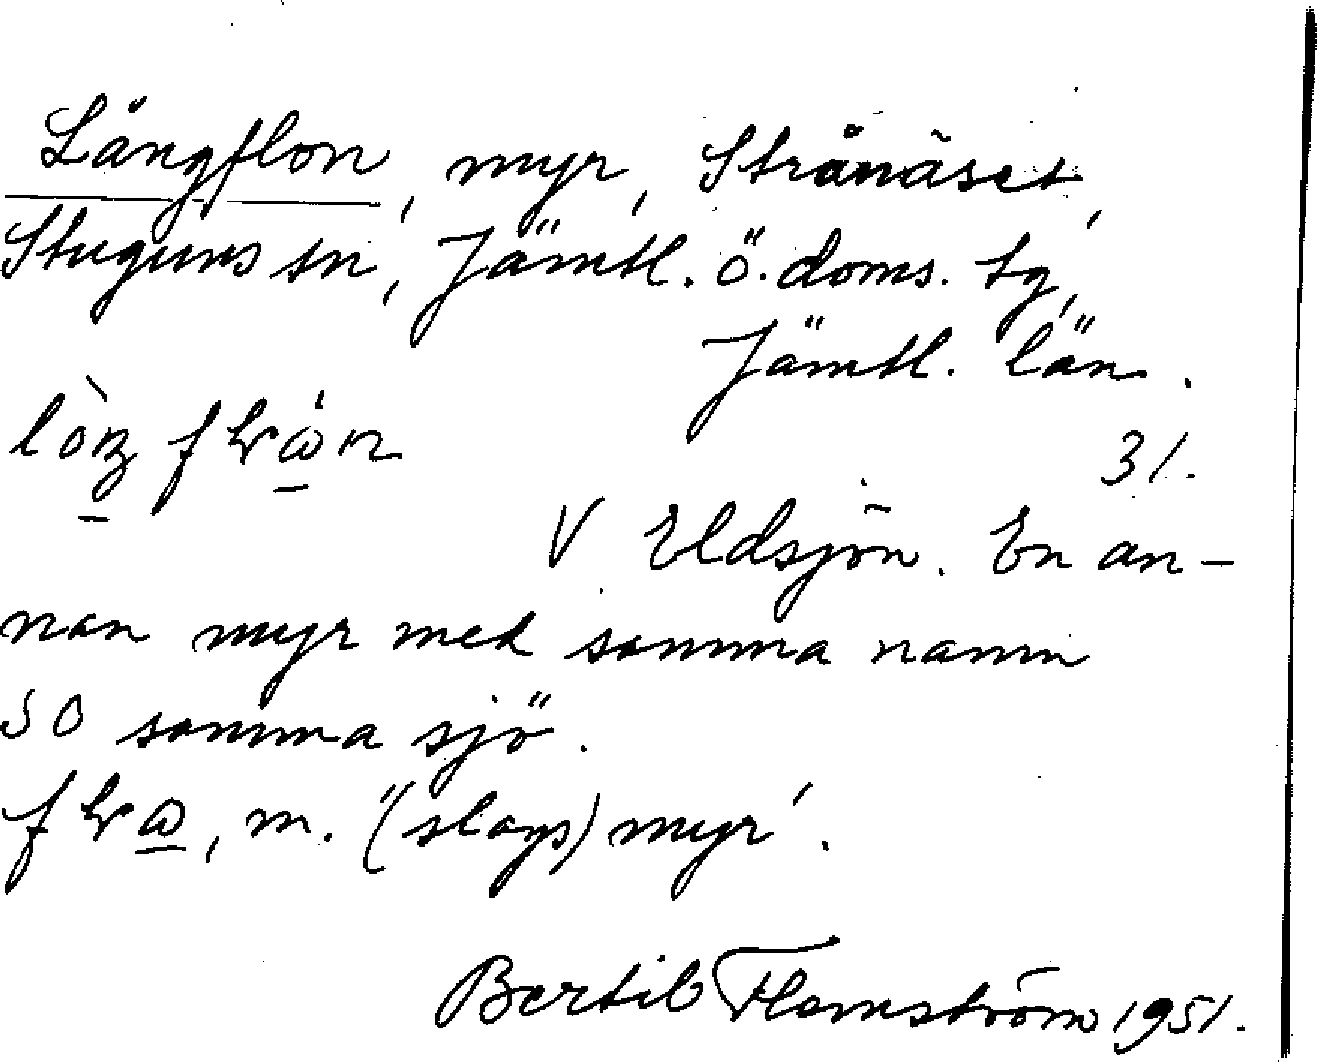 Långflon, myr, Strånäset,
Stuguns sn, Jämtl. ö. doms. tg,
Jämtl. län.
31.
V Eldsjön. En an-
nan myr med samma namn
SO samma sjö.
m. "(slags) myr'.
Bertil Flemström 1951.